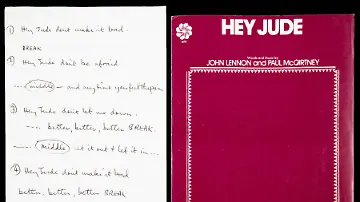 ① Hey Jude dont make it bad.
BREAK
② Hey Jude don't be afraid
.... middle - and any time you feel the pain
③ Hey Jude don't let me down.
.... better, better, better BREAK.
middle - let it out & let it in...
④ Hey Jude don't make it bad
better, better, better BREAK
HEY JUDE
Words and Music by
JOHN LENNON and PAUL McCARTNEY